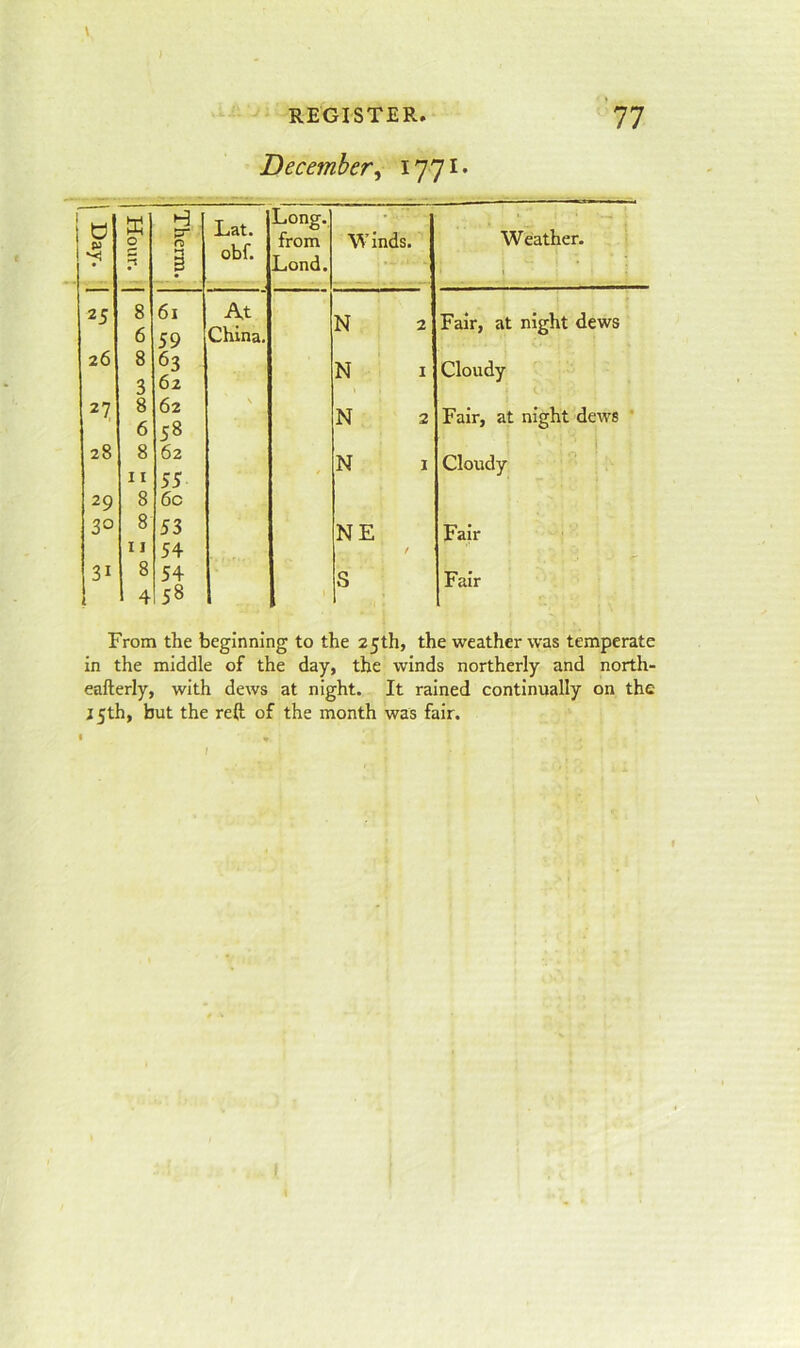 REGISTER. 77
December, 1771.
Day. Hour. Therm. Lat. obſ. Long. from Lond. Winds. Weather.
25 8 61 At N 2 Fair, at night dews
6 59 China.
26 8 63 N 1 Cloudy
3 62
27 8 62 N 2 Fair, at night dews
6 58
28 8 62 N 1 Cloudy
11 55
29 8 60
30 8 53 N E Fair
11 54
31 8 54 S Fair
4 58
From the beginning to the 25th, the weather was temperate
in the middle of the day, the winds northerly and north-
eaſterly, with dews at night. It rained continually on the
15th, but the reſt of the month was fair.